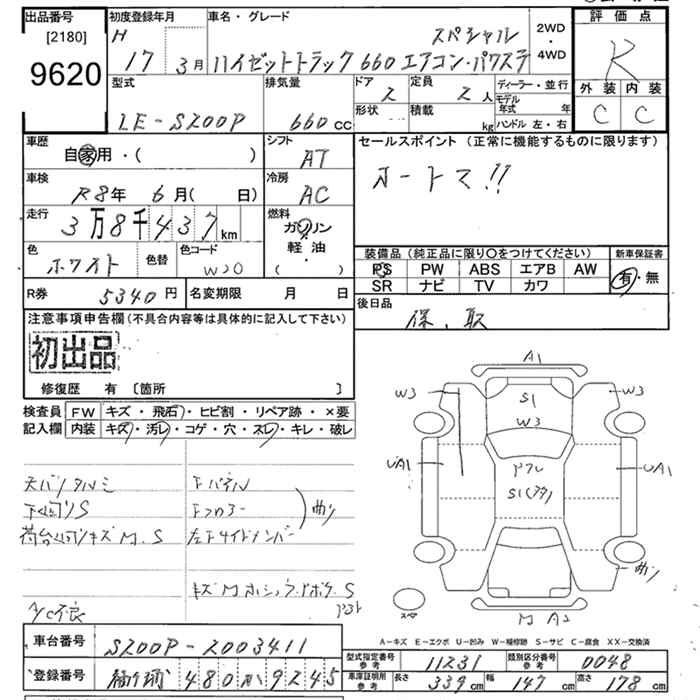 出品番号 初度登録年月 車名・グレード 評価点
[2180] H スペシャル 2WD
9620 17 3月 ハイゼットトラック 660 エアコン・パワステ 4WD R
型式 排気量 ドア 定員 ディーラー・並行 外装 内装
2 2人 モデル年式 年 C C
LE-S200P 660cc 形状 積載 kg ハンドル 左・右
車歴 シフト セールスポイント (正常に機能するものに限ります)
自家用・( ) AT
車検 冷房 オートマ!!
R8年 6月( 日) AC
走行 燃料
3万8千437km ガソリン
色 色替 色コード 軽油 装備品 (純正品に限り○をつけてください) 新車保証書
ホワイト W20 ( ) PS PW ABS エアB AW 有・無
R券 5340円 名変期限 月 日 SR ナビ TV カワ
後日品
注意事項申告欄 (不具合内容等は具体的に記入して下さい) 保、取
初出品
修復歴 有 〔箇所 〕
検査員 FW キズ・飛石・ヒビ割・リペア跡・×要
記入欄 内装 キズ・汚レ・コゲ・穴・スレ・キレ・破レ
A1
W3 S1 W3
W3
UA1 UA1
S1
下パネル
下回りS 下フロアー 曲リ
荷台 キズM.S 左下サイドメンバー
曲リ
A/C不良
M A2
A-キズ E-エクボ U-凹み W-補修跡 S-サビ C-腐食 XX-交換済
車台番号 S200P-2003411 型式指定番号 参考 11231 類別区分番号 参考 0048
登録番号 480 か 9245 車庫証明用 参考 長さ 339cm 幅 147cm 高さ 178cm